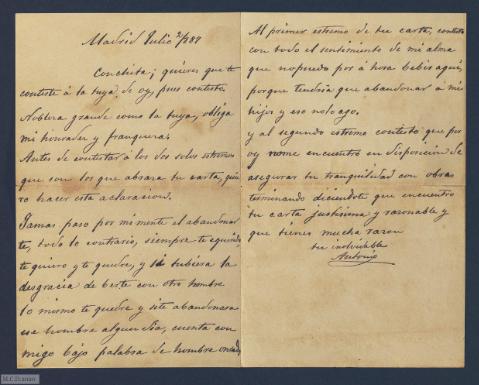 Madrid Julio 2/889
Conchita; quieres que te
conteste á la tuya de oy, pues contesto
Noblera grande como la tuya, obliga
mi honrader y franquera.
Antes de contestar á los dos solos estremos
que son los que abrara tu carta, quie
ro hacer esta aclaracion.
Jamas paso por mi mente el abandonar
te, todo lo contrario, siempre te e querido
te quiero y te quedre, y si tubiera la
desgracia de berte con otro hombre
lo mismo te quedre y si te abandonasa
ese hombre algun dia, cuenta con
migo bajo palabra de hombre onrado,
Al primer estremo de tu carta, contesto
con todo el sentimiento de mi alma
que no puedo por á hora bibir aqui,
porque tendria que abandonar á mis
hijos y eso no lo ago.
y al segundo estremo contesto que por
oy no me encuentro en disposicion de
asegurar tu tranquilidad con obras
terminando diciendote que encuentro
tu carta justisima y raronable y
que tienes mucha raron
tu inolvidable
Antonio
M.C.D.